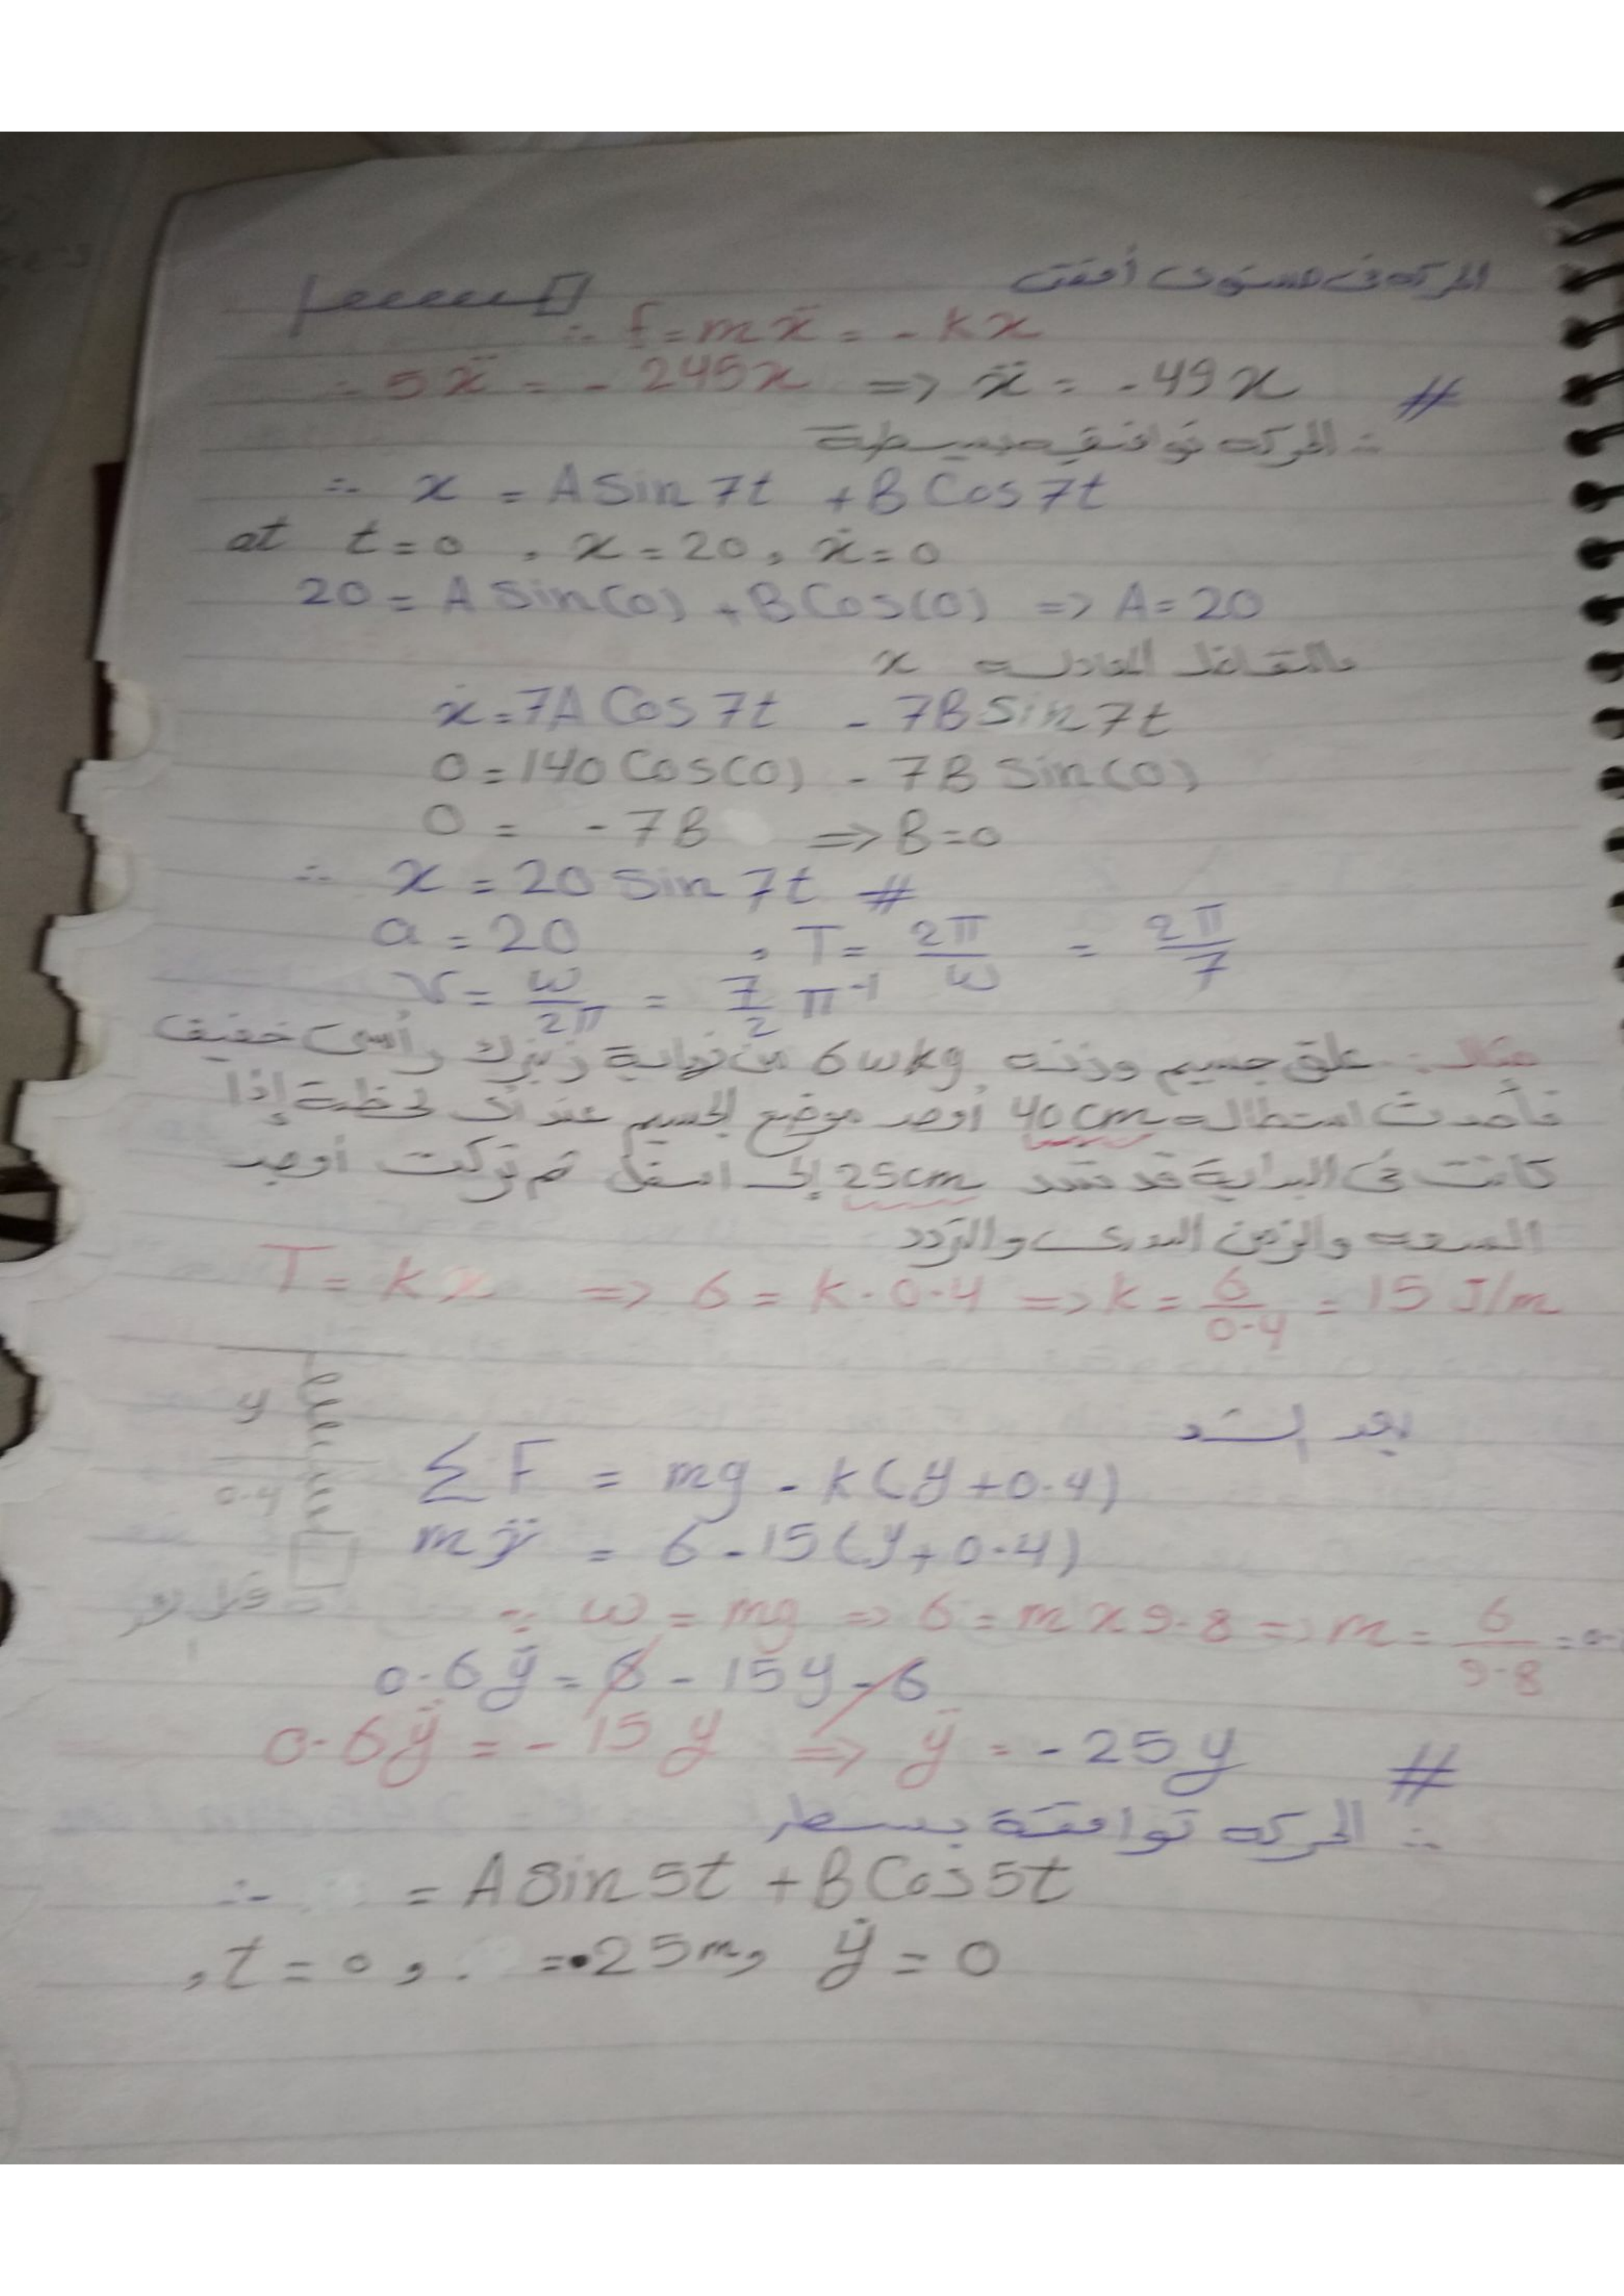 الحركه فى مستوى أفقى
∴ f = mẍ = - kx
∴ 5ẍ = - 245x => ẍ = - 49x #
∴ الحركه توافقيه بسيطة
∴ x = A Sin 7t + B Cos 7t
at t = 0 , x = 20 , ẋ = 0
20 = A Sin(0) + B Cos(0) => A = 20
بالتفاضل المعادله x
ẋ = 7A Cos 7t - 7B Sin 7t
0 = 140 Cos(0) - 7B Sin(0)
0 = - 7B => B = 0
∴ x = 20 Sin 7t #
a = 20 , T = 2π/ω = 2π/7
ν = ω/2π = 7/2 π⁻¹
مثال: علق جسيم وزنه 6 wkg من نهاية زنبرك رأسى خفيف
فأحدث استطاله 40 cm أوجد موضع الجسيم عند أى لحظة إذا
كانت فى البداية قد شد 25cm إلى اسفل ثم تركت أوجد
السعه والزمن الدورى والتردد
T = kx => 6 = k · 0.4 => k = 6/0.4 = 15 J/m
بعد الشد
y
0.4
∑F = mg - k(y + 0.4)
mÿ = 6 - 15(y + 0.4)
∵ ω = mg => 6 = m x 9.8 => m = 6/9.8 = 0.
0.6ÿ = 6 - 15y - 6
0.6ÿ = - 15y => ÿ = - 25y #
∴ الحركه توافقة بسطر
∴ = A Sin 5t + B Cos 5t
, t = 0 , = .25m , ẏ = 0